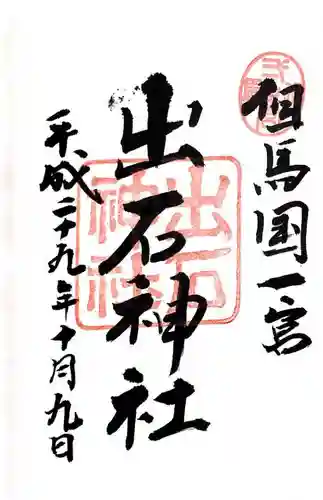 但馬国一宮
出石神社
出石
神社
平成二十九年十月九日